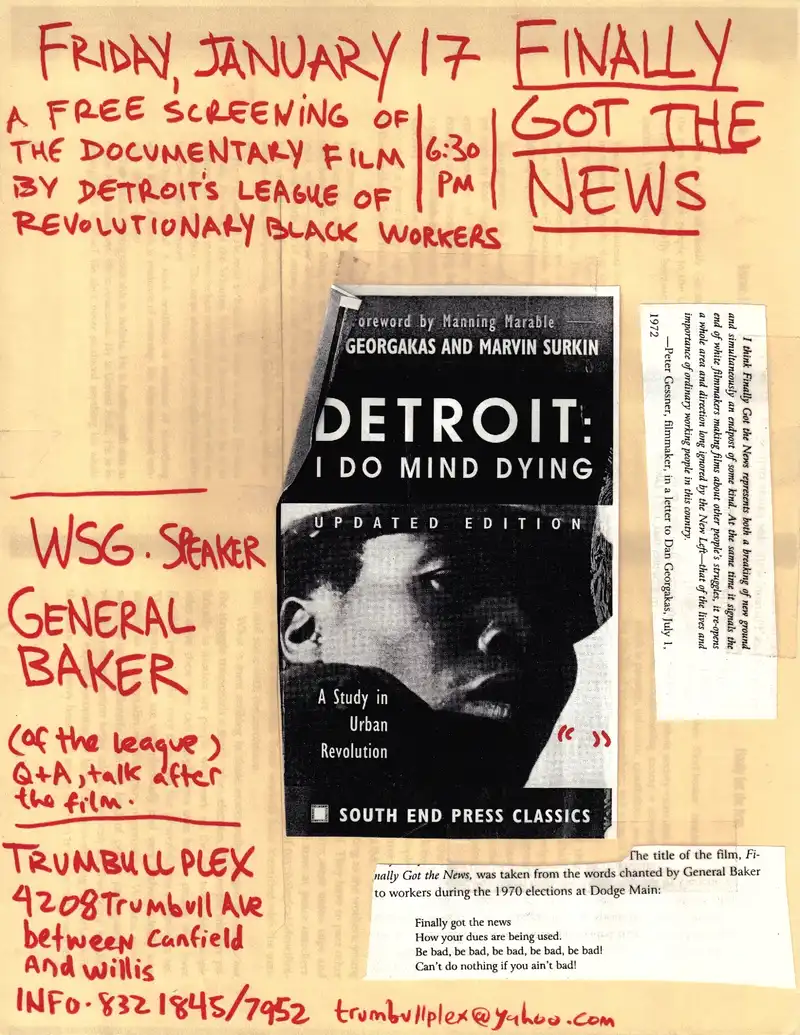 FRIDAY, JANUARY 17
FINALLY
GOT THE
NEWS
A FREE SCREENING OF
THE DOCUMENTARY FILM
BY DETROIT'S LEAGUE OF
REVOLUTIONARY BLACK WORKERS
6:30
PM
oreword by Manning Marable
GEORGAKAS AND MARVIN SURKIN
DETROIT:
I DO MIND DYING
UPDATED EDITION
A Study in
Urban
Revolution
“ ”
SOUTH END PRESS CLASSICS
I think Finally Got the News represents both a breaking of new ground
and simultaneously an endpost of some kind. At the same time it signals the
end of white filmmakers making films about other people's struggles, it re-opens
a whole area and direction long ignored by the New Left—that of the lives and
importance of ordinary working people in this country.
—Peter Gessner, filmmaker, in a letter to Dan Georgakas, July 1,
1972
WSG. SPEAKER
GENERAL
BAKER
(of the league)
Q+A, talk after
the film.
TRUMBULLPLEX
4208 Trumbull Ave
between Canfield
And Willis
INFO. 832 1845/7952 trumbullplex@yahoo.com
The title of the film, Fi-
nally Got the News, was taken from the words chanted by General Baker
to workers during the 1970 elections at Dodge Main:
Finally got the news
How your dues are being used.
Be bad, be bad, be bad, be bad, be bad!
Can't do nothing if you ain't bad!